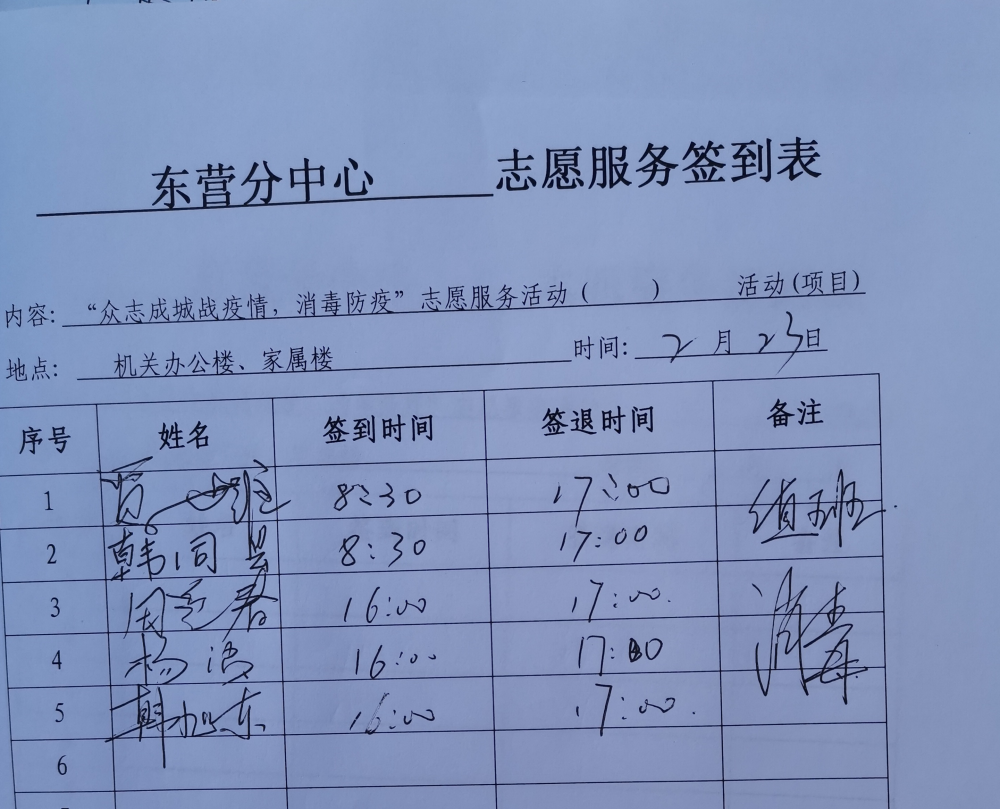 东营分中心 志愿服务签到表
内容: “众志成城战疫情，消毒防疫”志愿服务活动（ ） 活动(项目)
地点: 机关办公楼、家属楼 时间: 2 月 23 日
序号 姓名 签到时间 签退时间 备注
1 8:30 17:00 值班
2 韩同昙 8:30 17:00
3 周 春 16:00 17:00 消毒
4 杨洁 16:00 17:00
5 韩旭东 16:00 17:00
6